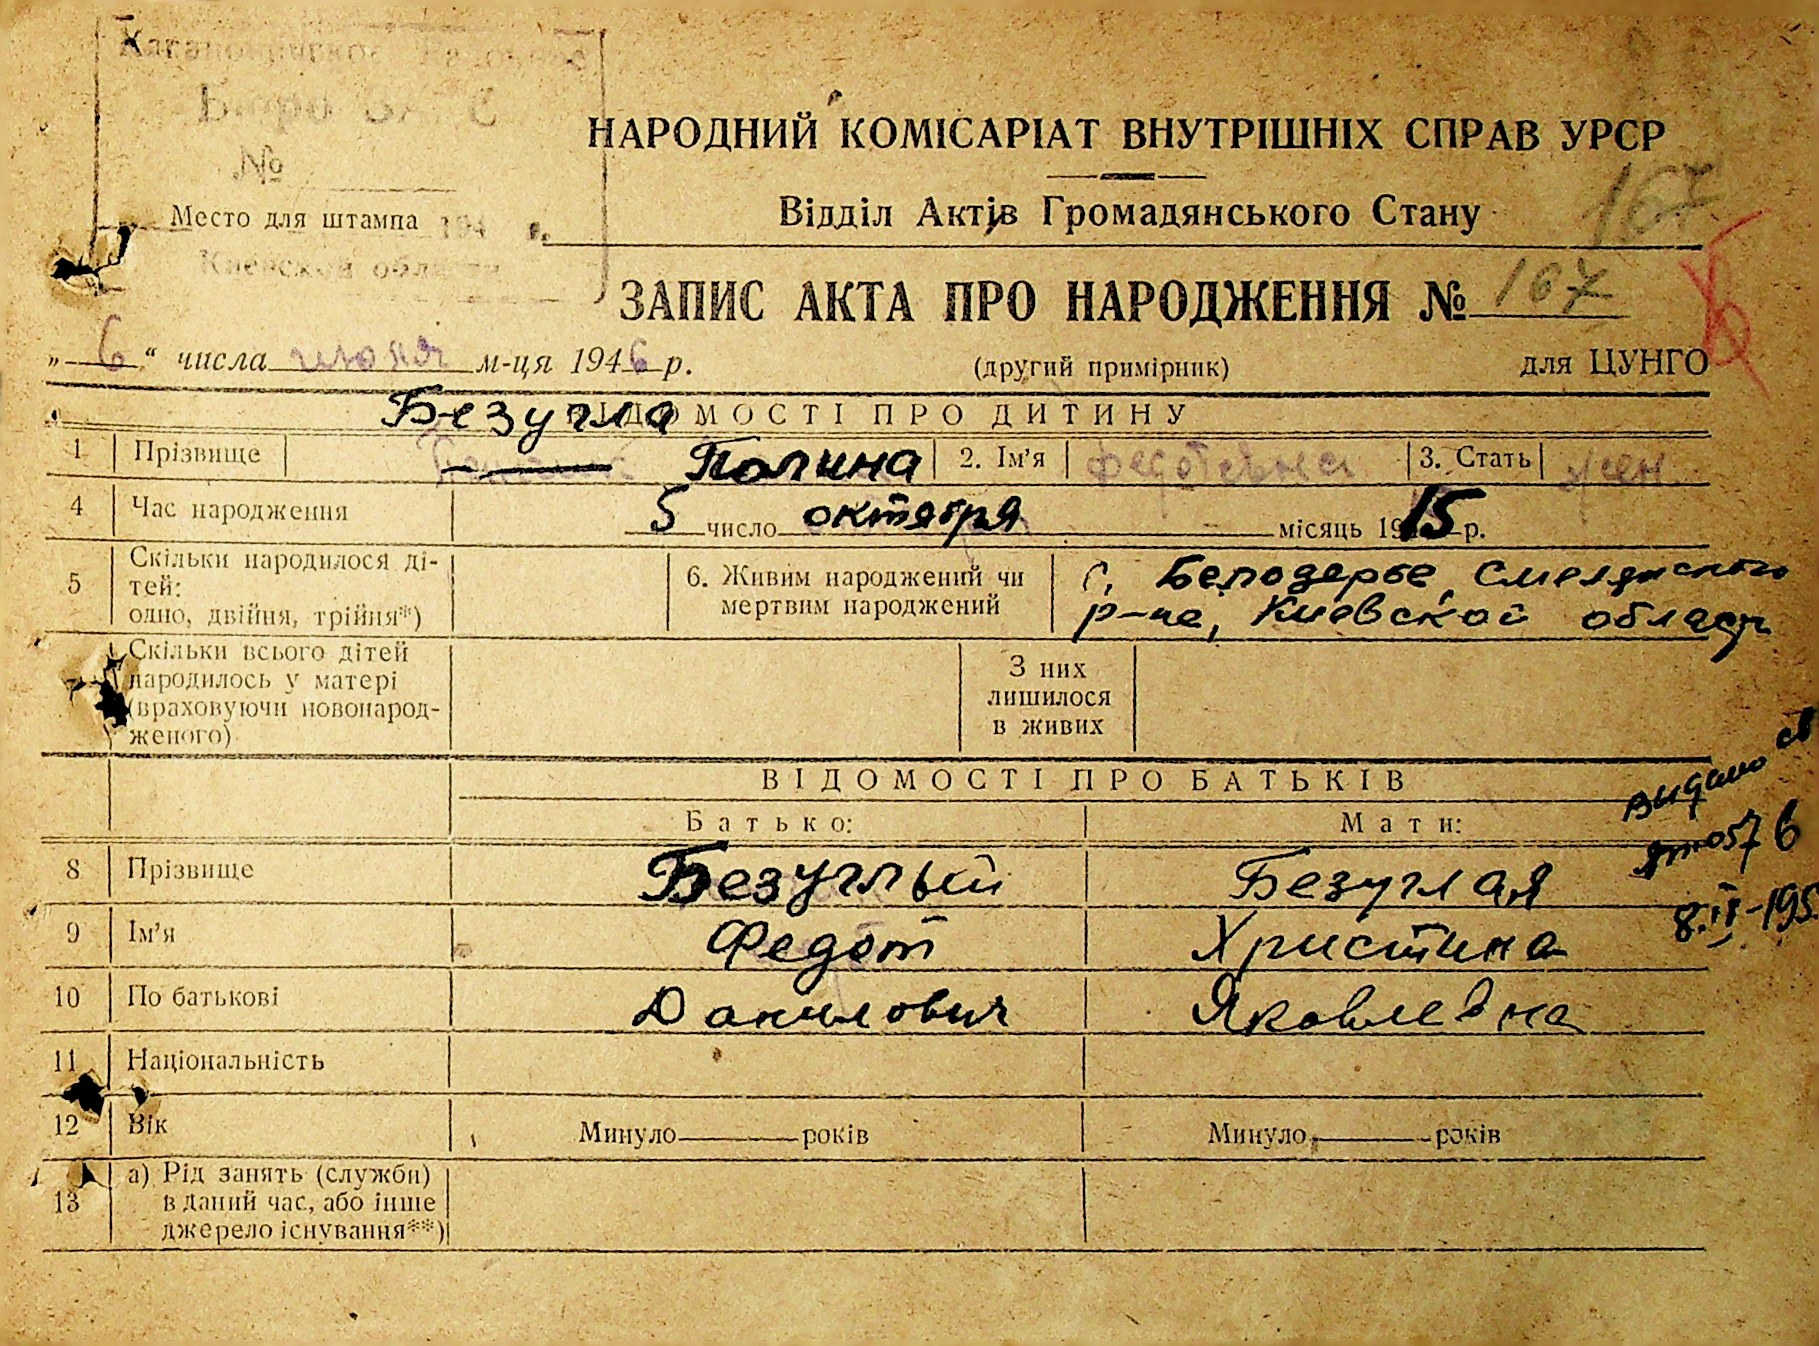 Бюро ЗАГС
№
Место для штампа 194 г.
Киевской области
НАРОДНИЙ КОМІСАРІАТ ВНУТРІШНІХ СПРАВ УРСР
Відділ Актів Громадянського Стану
167
ЗАПИС АКТА ПРО НАРОДЖЕННЯ № 167
„ 6 “ числа июня м-ця 1946 р. (другий примірник) для ЦУНГО
Безугла
ВІДОМОСТІ ПРО ДИТИНУ
1 Прізвище Полина 2. Ім’я Федотовна 3. Стать жен.
4 Час народження 5 число октября місяць 1915 р.
5 Скільки народилося ді-
тей:
одно, двійня, трійня*)
6. Живим народжений чи
мертвим народжений
с. Белозерье, Смелянского
р-на, Киевской области
Скільки всього дітей
народилось у матері
(враховуючи новонарод-
женого)
З них
лишилося
в живих
ВІДОМОСТІ ПРО БАТЬКІВ
Батько: Мати:
видано
8.II-195
8 Прізвище Безуглый Безуглая
9 Ім’я Федот Христина
10 По батькові Данилович Яковлевна
11 Національність
12 Вік Минуло років Минуло років
13 а) Рід занять (служби)
в даний час, або інше
джерело існування**)